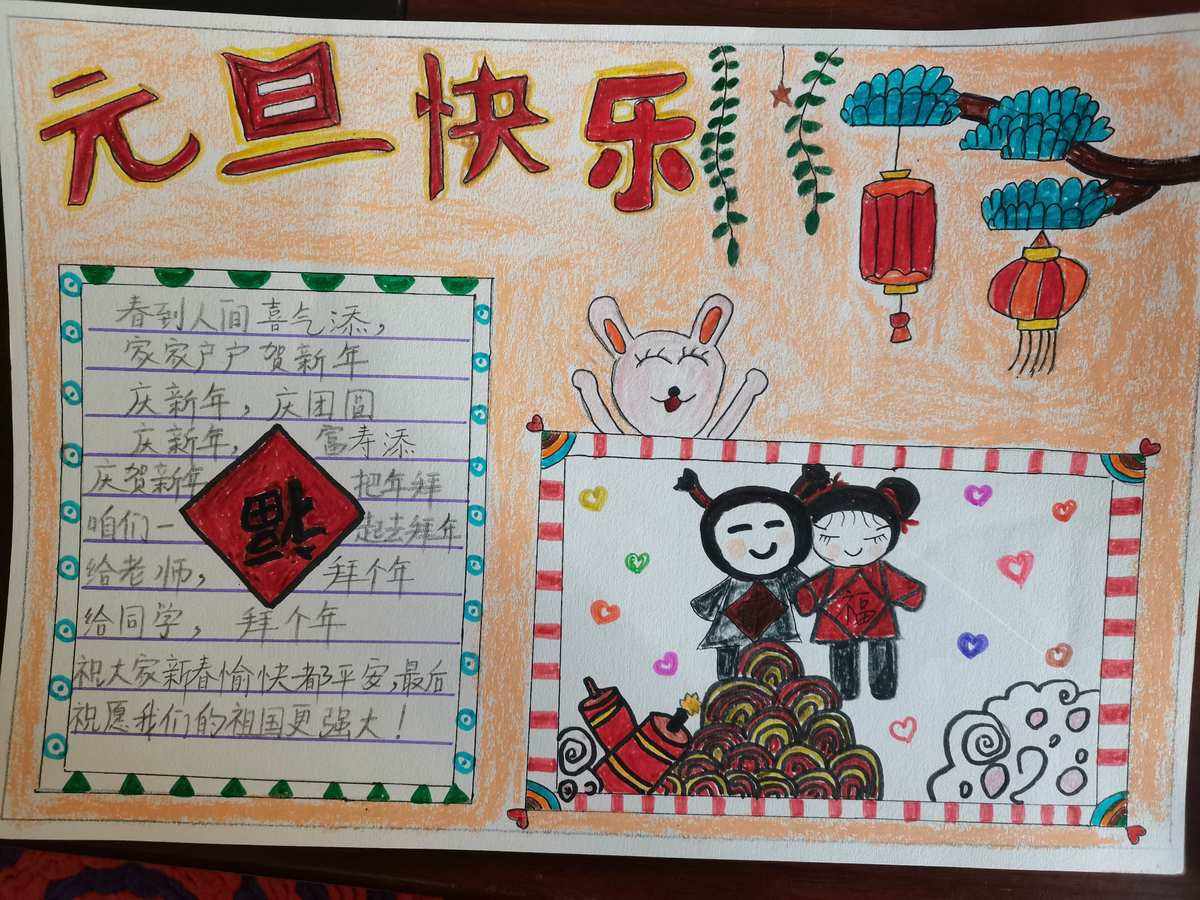 元旦快乐
春到人间喜气添，
家家户户贺新年
庆新年，庆团圆
庆新年， 富寿添
庆贺新年 把年拜
咱们一 起去拜年
给老师， 拜个年
给同学， 拜个年
祝大家新春愉快都平安，最后
祝愿我们的祖国更强大！
福
福